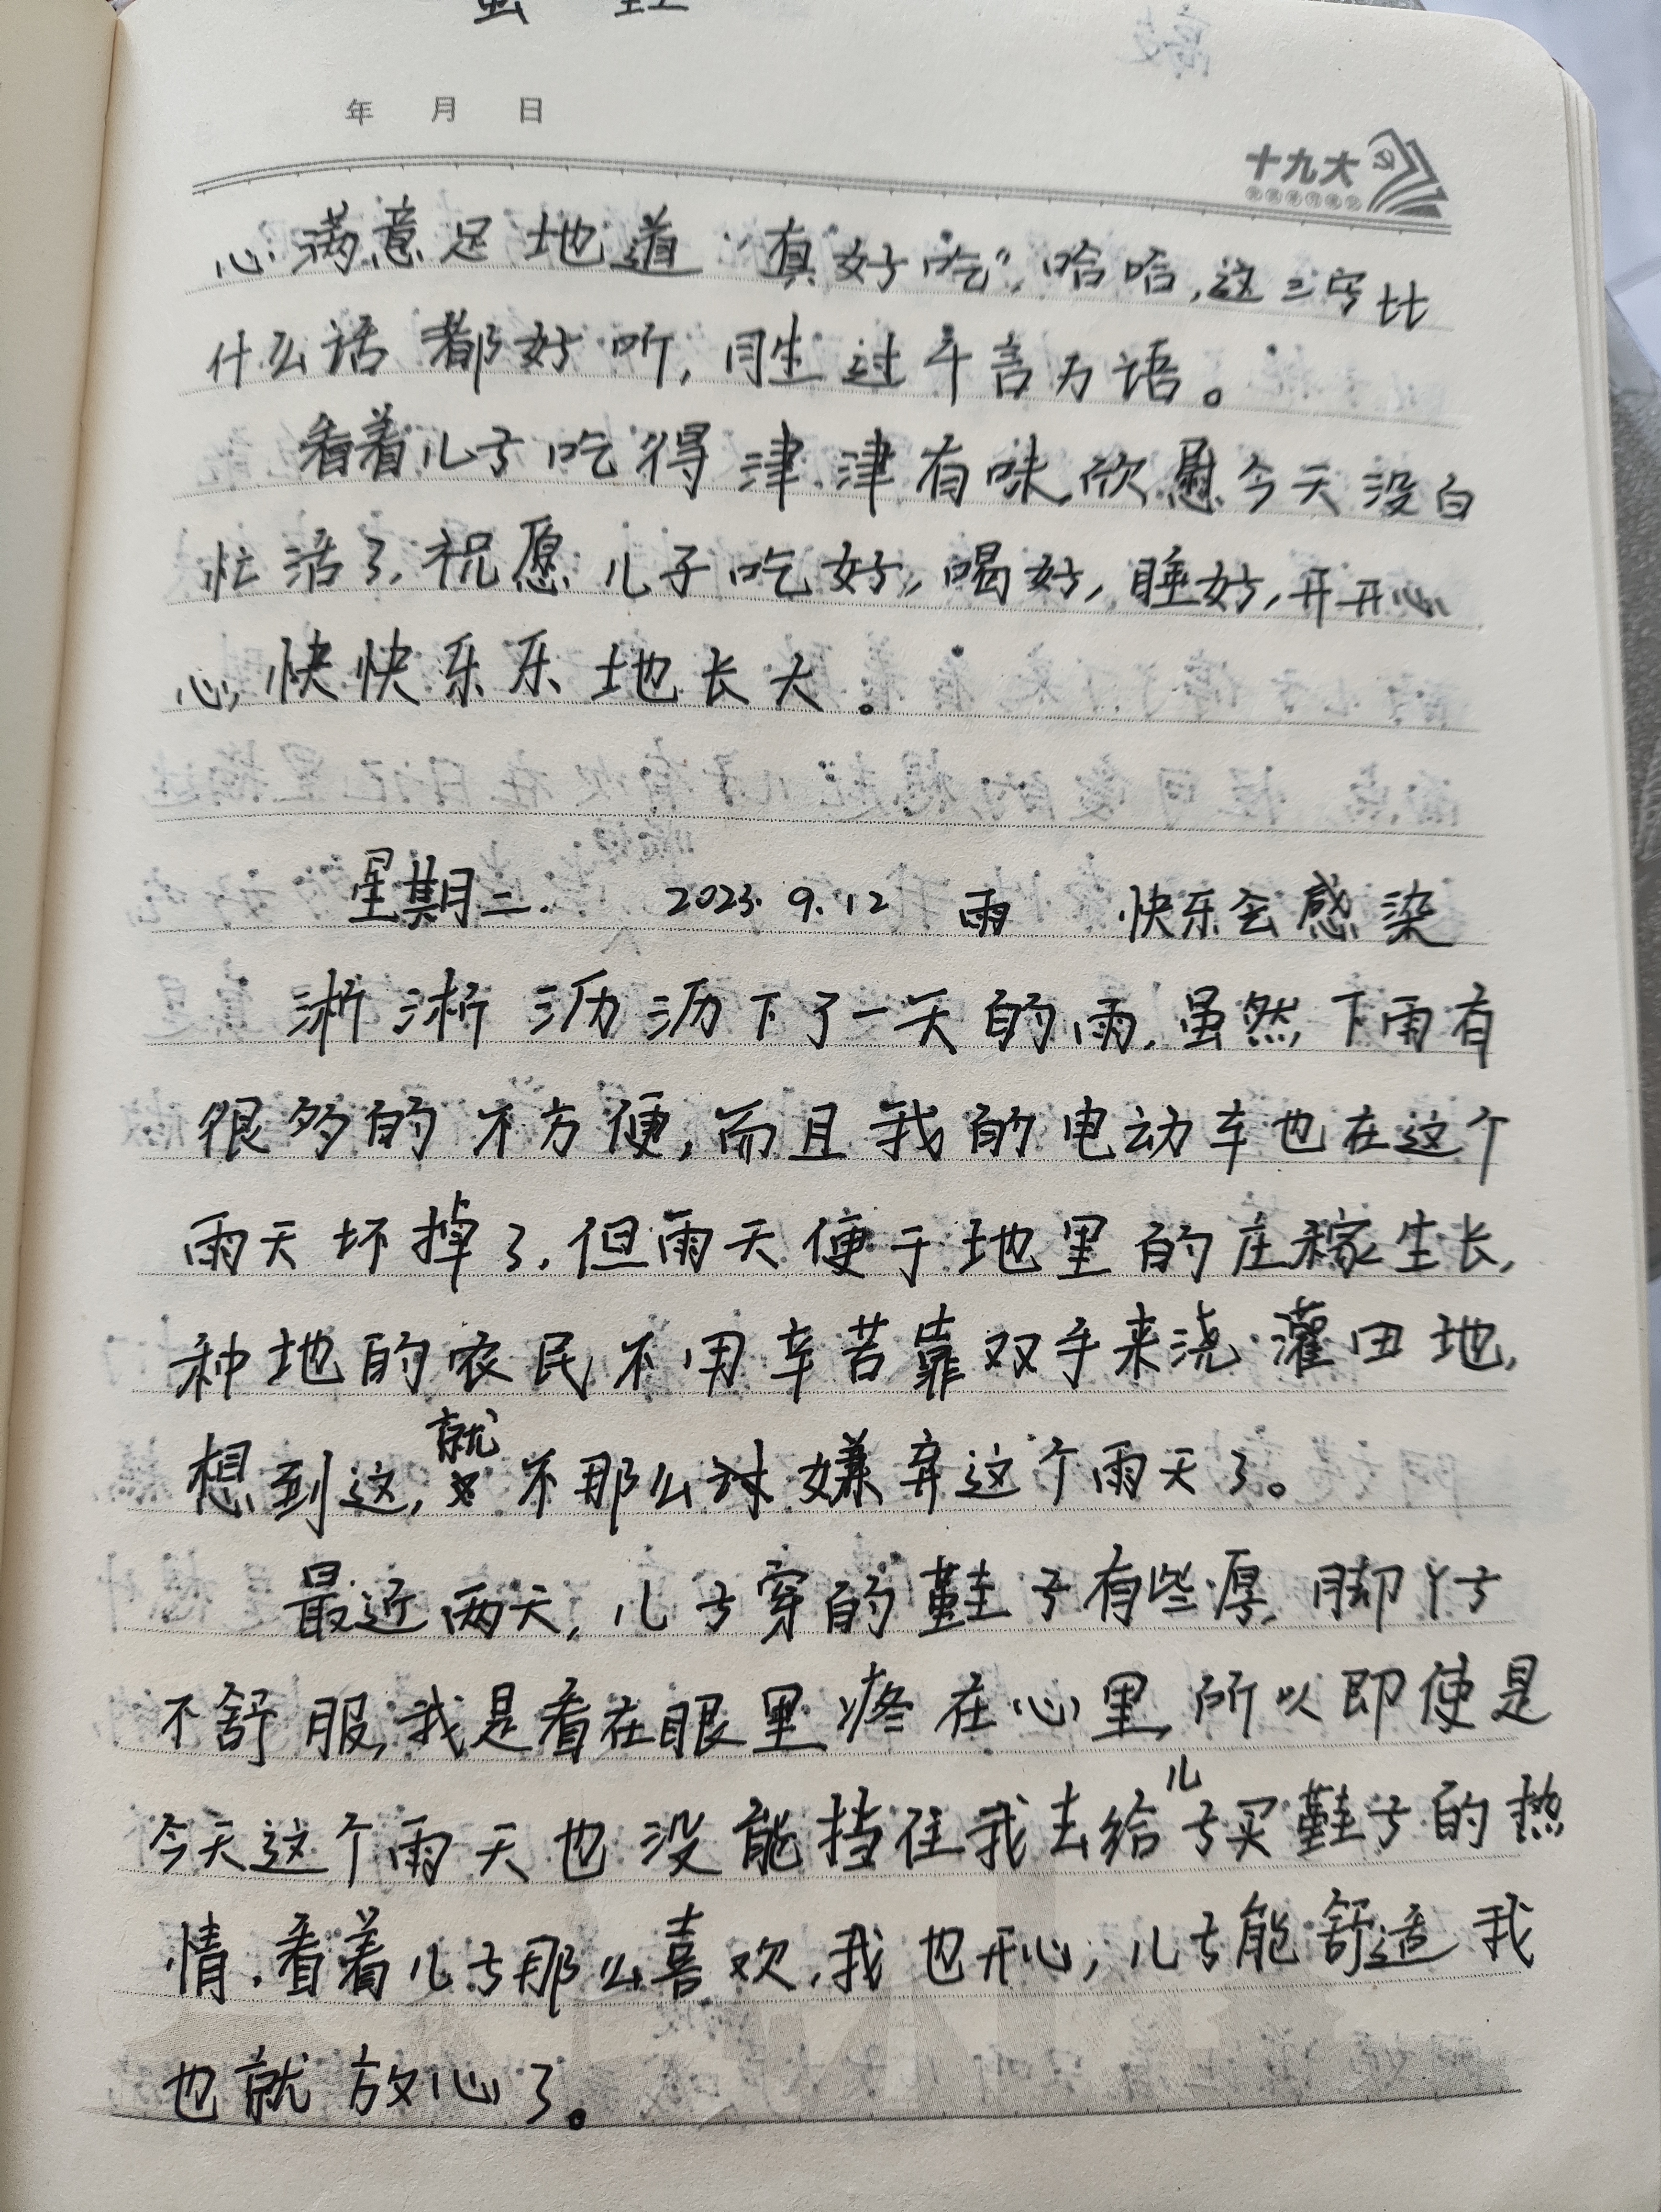 年 月 日
十九大
心满意足地道“真好吃”,哈哈,这三字比
什么话都好听,胜过千言万语。
看着儿子吃得津津有味,欣慰今天没白
忙活了,祝愿儿子吃好,喝好,睡好,开开心
心,快快乐乐地长大。
星期二. 2023.9.12 雨 快乐会感染
淅淅沥沥下了一天的雨,虽然下雨有
很多的不方便,而且我的电动车也在这个
雨天坏掉了,但雨天便于地里的庄稼生长,
种地的农民不用辛苦靠双手来浇灌田地,
想到这,就不那么嫌弃这个雨天了。
最近两天,儿子穿的鞋子有些厚,脚丫子
不舒服,我是看在眼里疼在心里,所以即使是
今天这个雨天也没能挡住我去给儿子买鞋子的热
情.看着儿子那么喜欢,我也开心,儿子能舒适我
也就放心了。